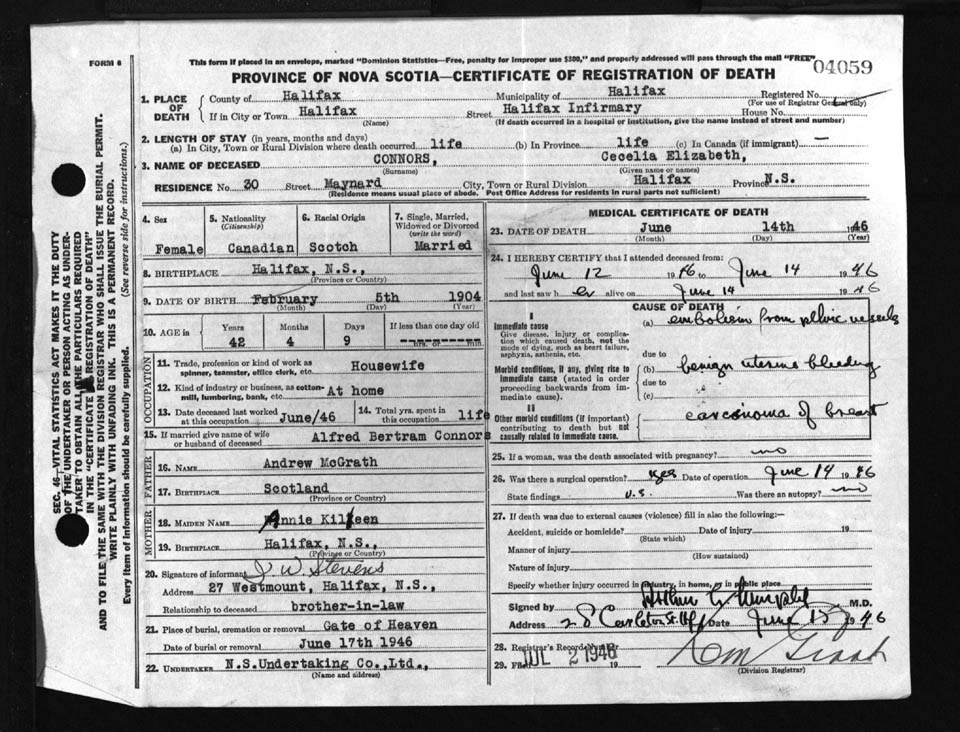 FORM 6
This form if placed in an envelope, marked "Dominion Statistics—Free, penalty for improper use $300," and properly addressed will pass through the mail "FREE"
04059
PROVINCE OF NOVA SCOTIA—CERTIFICATE OF REGISTRATION OF DEATH
1. PLACE OF DEATH
County of Halifax Municipality of Halifax Registered No.
(For use of Registrar General only)
If in City or Town Halifax Street Halifax Infirmary House No.
(Name) (If death occurred in a hospital or institution, give the name instead of street and number)
2. LENGTH OF STAY (in years, months and days)
(a) In City, Town or Rural Division where death occurred life (b) In Province life (c) In Canada (if immigrant) —
3. NAME OF DECEASED CONNORS, Cecelia Elizabeth,
(Surname) (Given name or names)
RESIDENCE No. 30 Street Maynard City, Town or Rural Division Halifax Province N.S.
(Residence means usual place of abode. Post Office Address for residents in rural parts not sufficient)
4. Sex
Female
5. Nationality
(Citizenship)
Canadian
6. Racial Origin
Scotch
7. Single, Married,
Widowed or Divorced
(write the word)
Married
8. BIRTHPLACE Halifax, N.S.,
(Province or Country)
9. DATE OF BIRTH February 5th 1904
(Month) (Day) (Year)
10. AGE in
Years Months Days If less than one day old
42 4 9 hrs. or min.
OCCUPATION
11. Trade, profession or kind of work as
spinner, teamster, office clerk, etc. Housewife
12. Kind of industry or business, as cotton-
mill, lumbering, bank, etc. At home
13. Date deceased last worked
at this occupation June/46
14. Total yrs. spent in
this occupation life
15. If married give name of wife
or husband of deceased Alfred Bertram Connors
FATHER
16. NAME Andrew McGrath
17. BIRTHPLACE Scotland
(Province or Country)
MOTHER
18. MAIDEN NAME Annie Killeen
19. BIRTHPLACE Halifax, N.S.,
(Province or Country)
20. Signature of informant J W Stevens
Address 27 Westmount, Halifax, N.S.,
Relationship to deceased brother-in-law
21. Place of burial, cremation or removal Gate of Heaven
Date of burial or removal June 17th 1946
22. UNDERTAKER N.S.Undertaking Co.,Ltd.,
(Name and address)
MEDICAL CERTIFICATE OF DEATH
23. DATE OF DEATH June 14th 1946
(Month) (Day) (Year)
24. I HEREBY CERTIFY that I attended deceased from:
June 12 1946 to June 14 1946
and last saw h er alive on June 14 1946
CAUSE OF DEATH
I
Immediate cause
Give disease, injury or complica-
tion which caused death, not the
mode of dying, such as heart failure,
asphyxia, asthenia, etc.
(a) embolism from pelvic vessels
due to
Morbid conditions, if any, giving rise to
immediate cause (stated in order
proceeding backwards from im-
mediate cause).
(b) benign uterine bleeding
due to
(c)
II
Other morbid conditions (if important)
contributing to death but not
causally related to immediate cause.
carcinoma of breast
25. If a woman, was the death associated with pregnancy? no
26. Was there a surgical operation? yes Date of operation June 14 1946
State findings U.S. Was there an autopsy? no
27. If death was due to external causes (violence) fill in also the following:—
Accident, suicide or homicide? Date of injury 19
(State which)
Manner of injury
(How sustained)
Nature of injury
Specify whether injury occurred in industry, in home, or in public place
Signed by Arthur Murphy M.D.
Address 28 Carleton St. Hfx Date June 15 1946
28. Registrar's Record Number
29. Filed JUL 2 1946 19
(Division Registrar)
SEC. 46—VITAL STATISTICS ACT MAKES IT THE DUTY
OF THE UNDERTAKER OR PERSON ACTING AS UNDER-
TAKER TO OBTAIN ALL THE PARTICULARS REQUIRED
IN THE "CERTIFICATE OF REGISTRATION OF DEATH"
AND TO FILE THE SAME WITH THE DIVISION REGISTRAR WHO SHALL ISSUE THE BURIAL PERMIT.
WRITE PLAINLY WITH UNFADING INK. THIS IS A PERMANENT RECORD.
Every item of information should be carefully supplied. (See reverse side for instructions.)